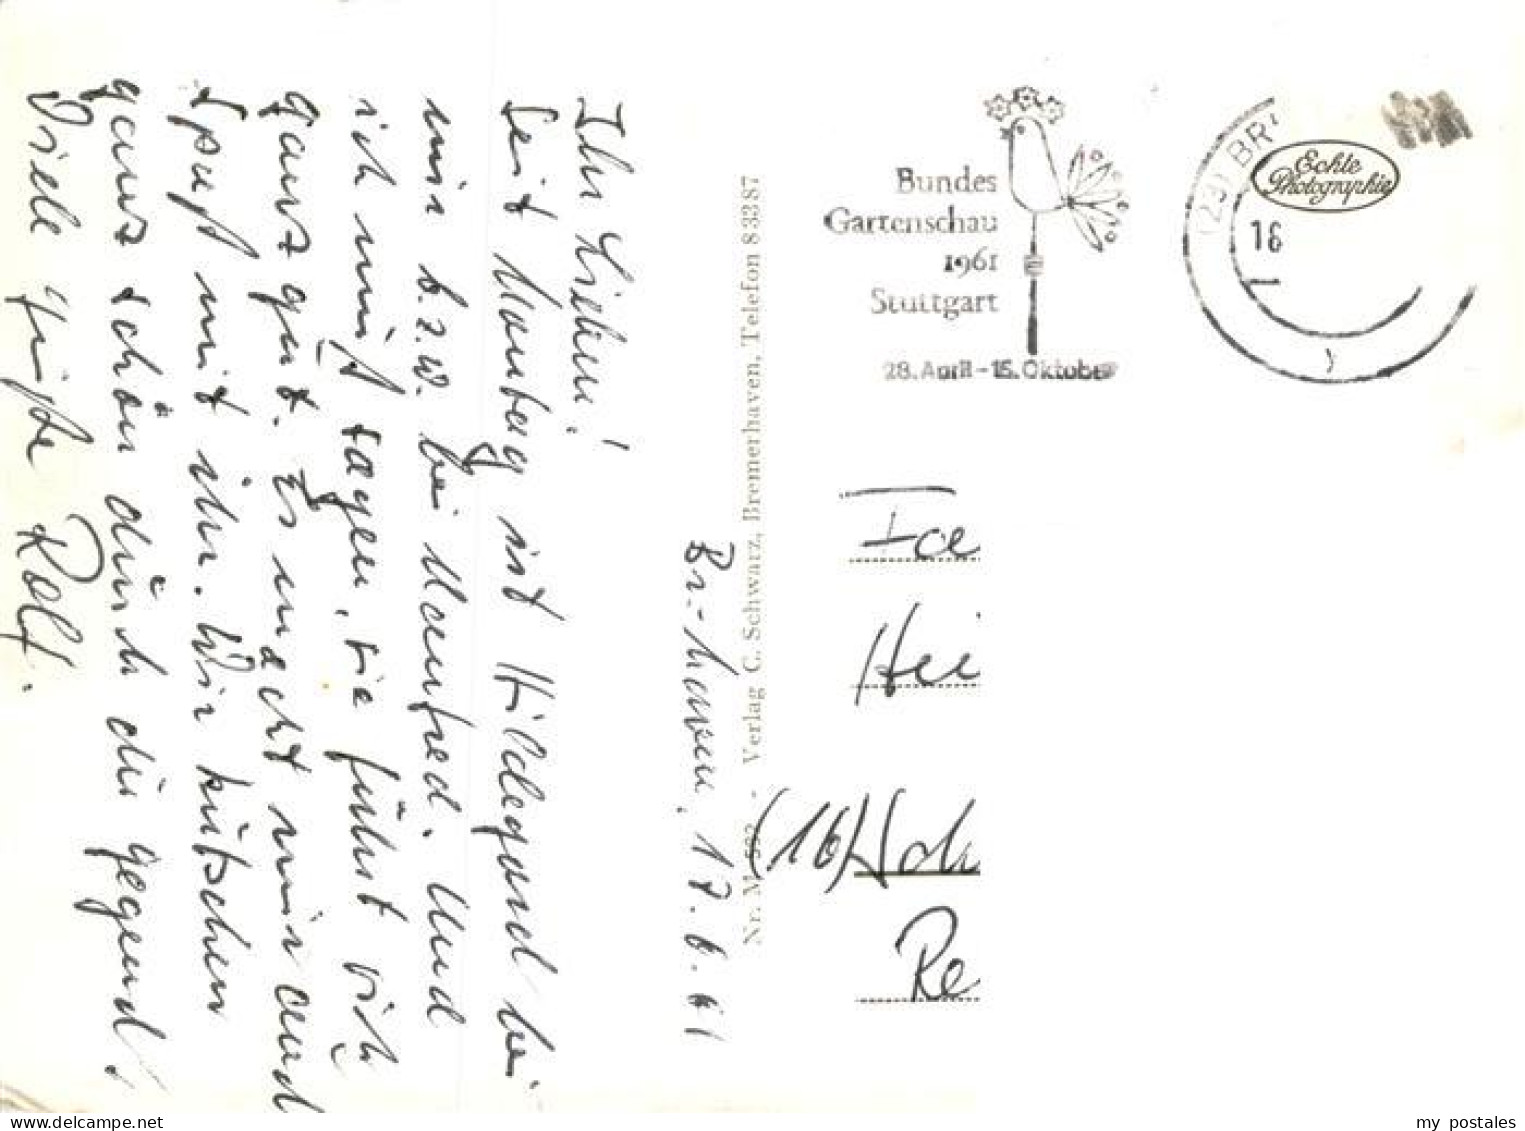 Br.-haven, 17.6.61
Ihr Lieben!
Seit Montag ist Hildegard bei
mir b.z.w. bei Manfred. Und
ich muß sagen, sie fühlt sich
ganz gut. Es macht mir auch
Spaß mit ihr. Wir kutschen
ganz schön durch die Gegend!
Viele Grüße Rolf.
Nr. M
- Verlag C. Schwarz, Bremerhaven, Telefon 83387
Bundes
Gartenschau
1961
Stuttgart
28. April - 15. Oktober
(23) BR
16
Echte
Photographie
Hei
(16)
Re
my postales